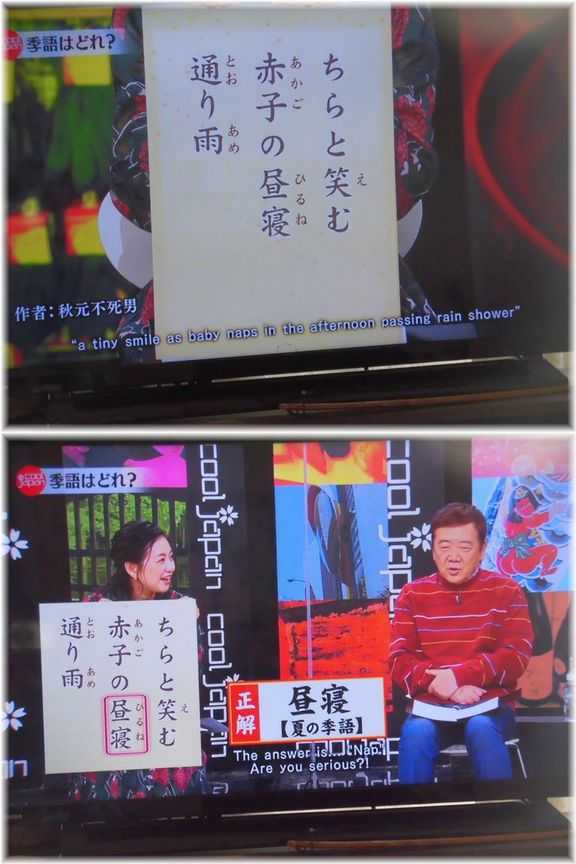 季語はどれ?
ちらと笑む
え
赤子の昼寝
あかご ひるね
通り雨
とお あめ
作者：秋元不死男
"a tiny smile as baby naps in the afternoon passing rain shower"
cool japan
季語はどれ?
cool japan
cool japan
cool japan
ちらと笑む
え
赤子の昼寝
あかご ひるね
通り雨
とお あめ
正解
昼寝
【夏の季語】
The answer is... "Nap."
Are you serious?!